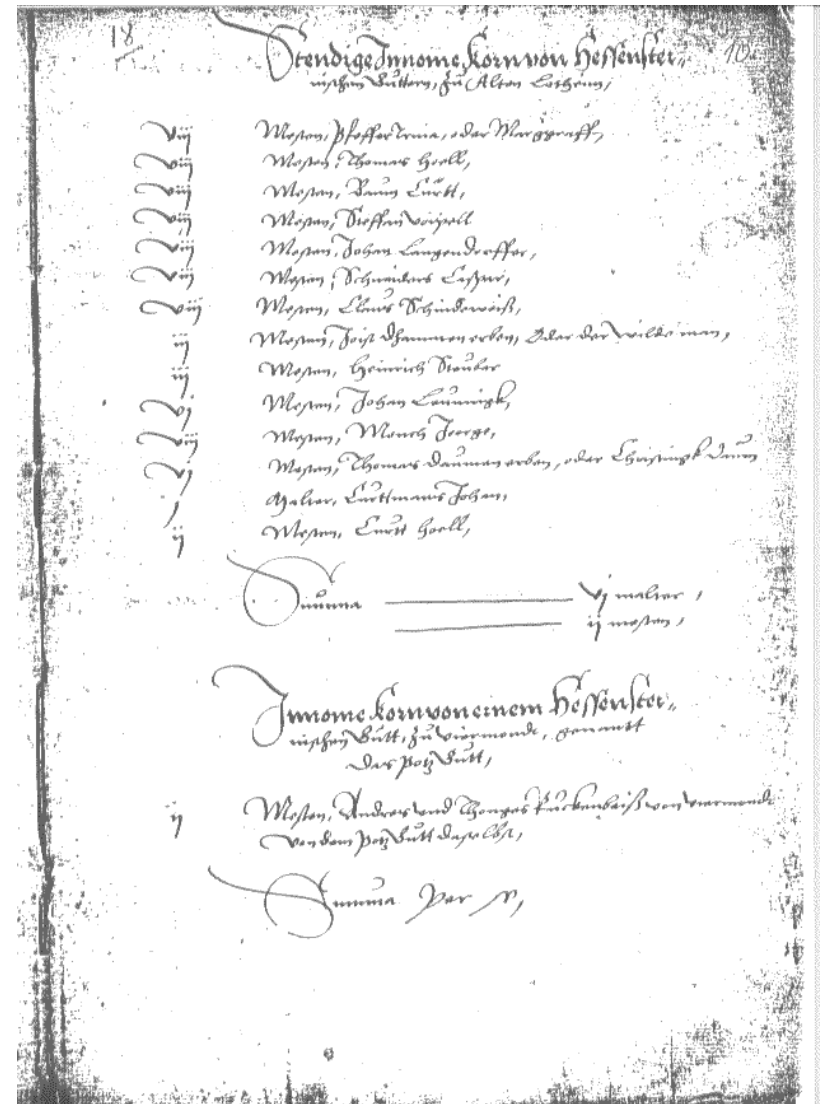 18
10
Stendige Innome Korn von Hessenster„
nischen Guttern, zu Alten Lotheim,
viij Mesten, Pfeffer Trina, oder Marggraff,
viij Mesten, Thomas Hoell,
viij Mesten, Baum Curtt,
viij Mesten, Steffan
viij Mesten, Johan Langendorffer,
viij Mesten, Schneiders Casper,
viij Mesten, Claus Schindeweiß,
ij Mesten, Joist erben, Oder der wilde man,
iij Mesten, Heinrich Steuber
vj Mesten, Johan
viij Mesten, Monch Jorge,
vj Mesten, Thomas Dauman erben, oder Daum
j Malter, Curttmans Johan,
ij Mesten, Curtt Hoell,
Summa vj malter,
ij mesten,
Innome Korn von einem Hessenster„
nischen Gutt, zu Viermonde, genantt
das Potz Gutt,
ij Mesten, Andres und Thonges von Viermonde
von dem Potz Gutt daselbst,
Summa per se,